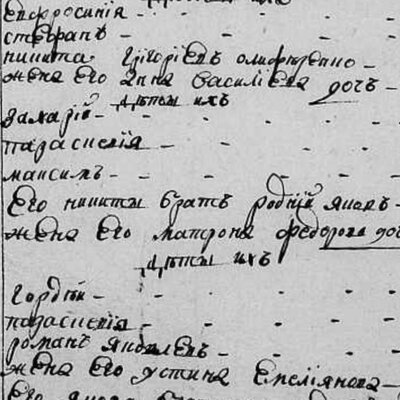 Евфросиния
стефанъ
никита Григориевъ
жена его Анна Василиева дочь
дѣты ихъ
Захарій
параскевия
максимъ
Его никиты братъ родній яковъ
жена его матрона федорова доч
дѣты ихъ
Гордѣй
параскевия
романъ яковлевъ
жена его устина Емелиянова